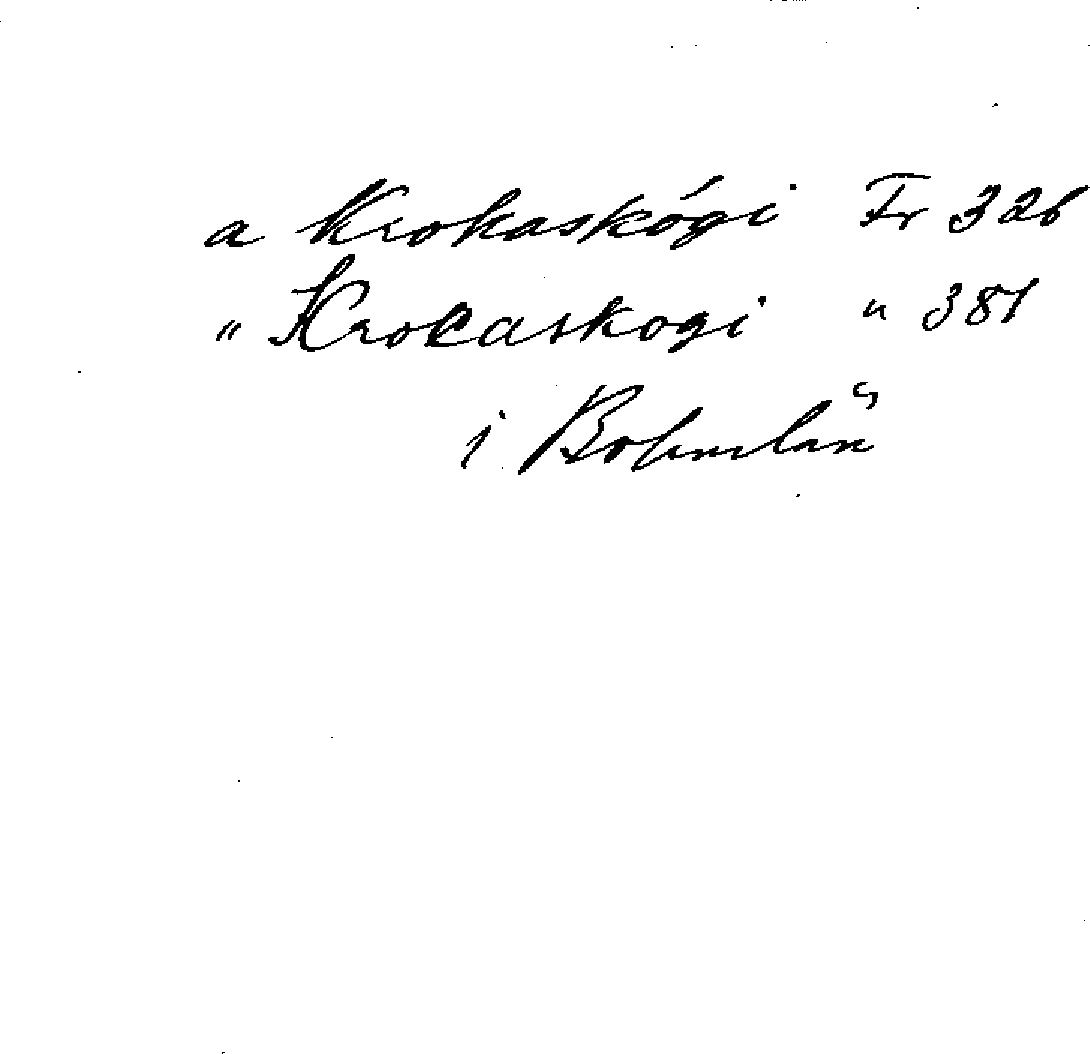 a Krokaskógi Fr 326
" Krocaskogi " 381
i Bohuslän